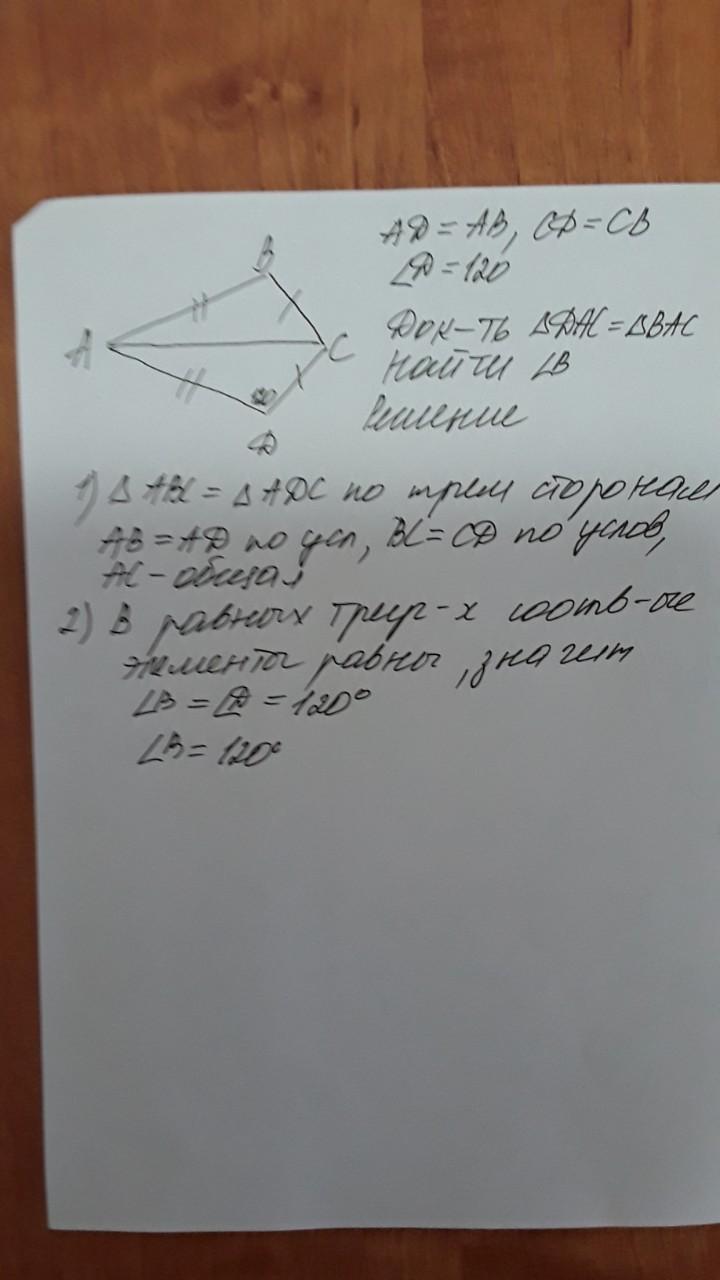 AD = AB, CD = CB
∠D = 120
Док-ть ΔDAC = ΔBAC
Найти ∠B
Решение
B
A
C
D
1) Δ ABC = Δ ADC по трем сторонам
AB = AD по усл, BC = CD по услов,
AC - общая
2) В равных треуг-х соотв-ые
элементы равны, значит
∠B = ∠D = 120°
∠B = 120°